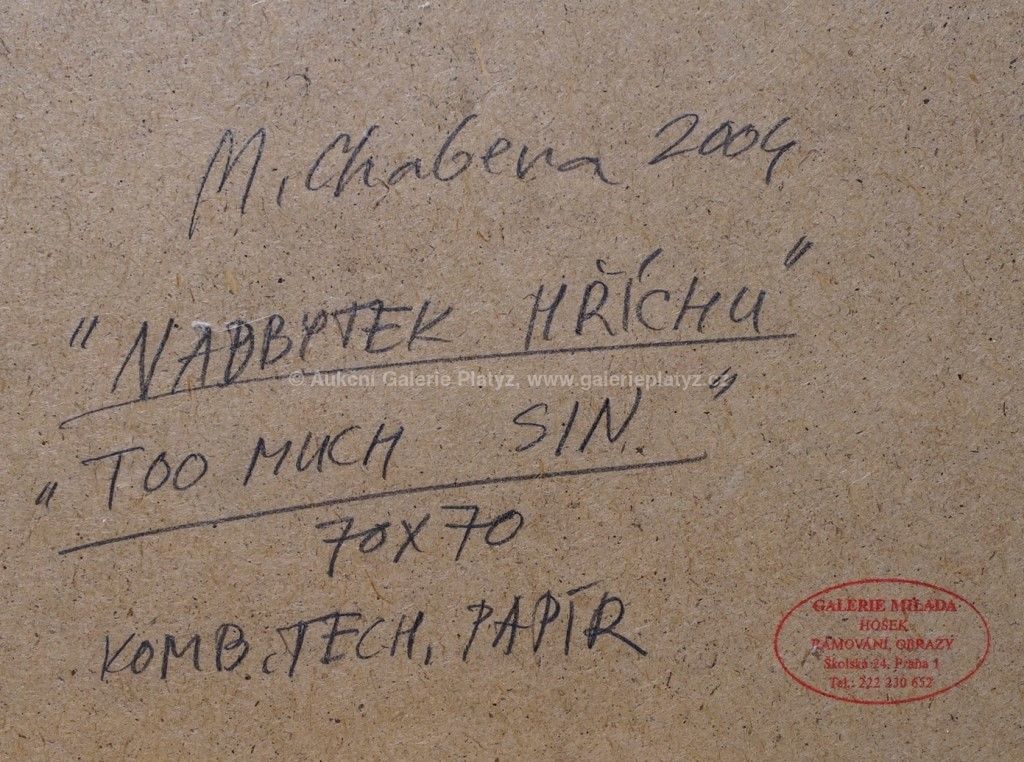 M, Chabera 2004
"NABBYTEK HŘÍCHU"
© Aukční Galerie Platýz, www.galerieplatyz.cz
"TOO MUCH SIN."
70x70
KOMB. TECH, PAPÍR
GALERIE MILADA
HOŠEK
RÁMOVÁNÍ, OBRAZY
Školská 24, Praha 1
Tel.: 222 230 652